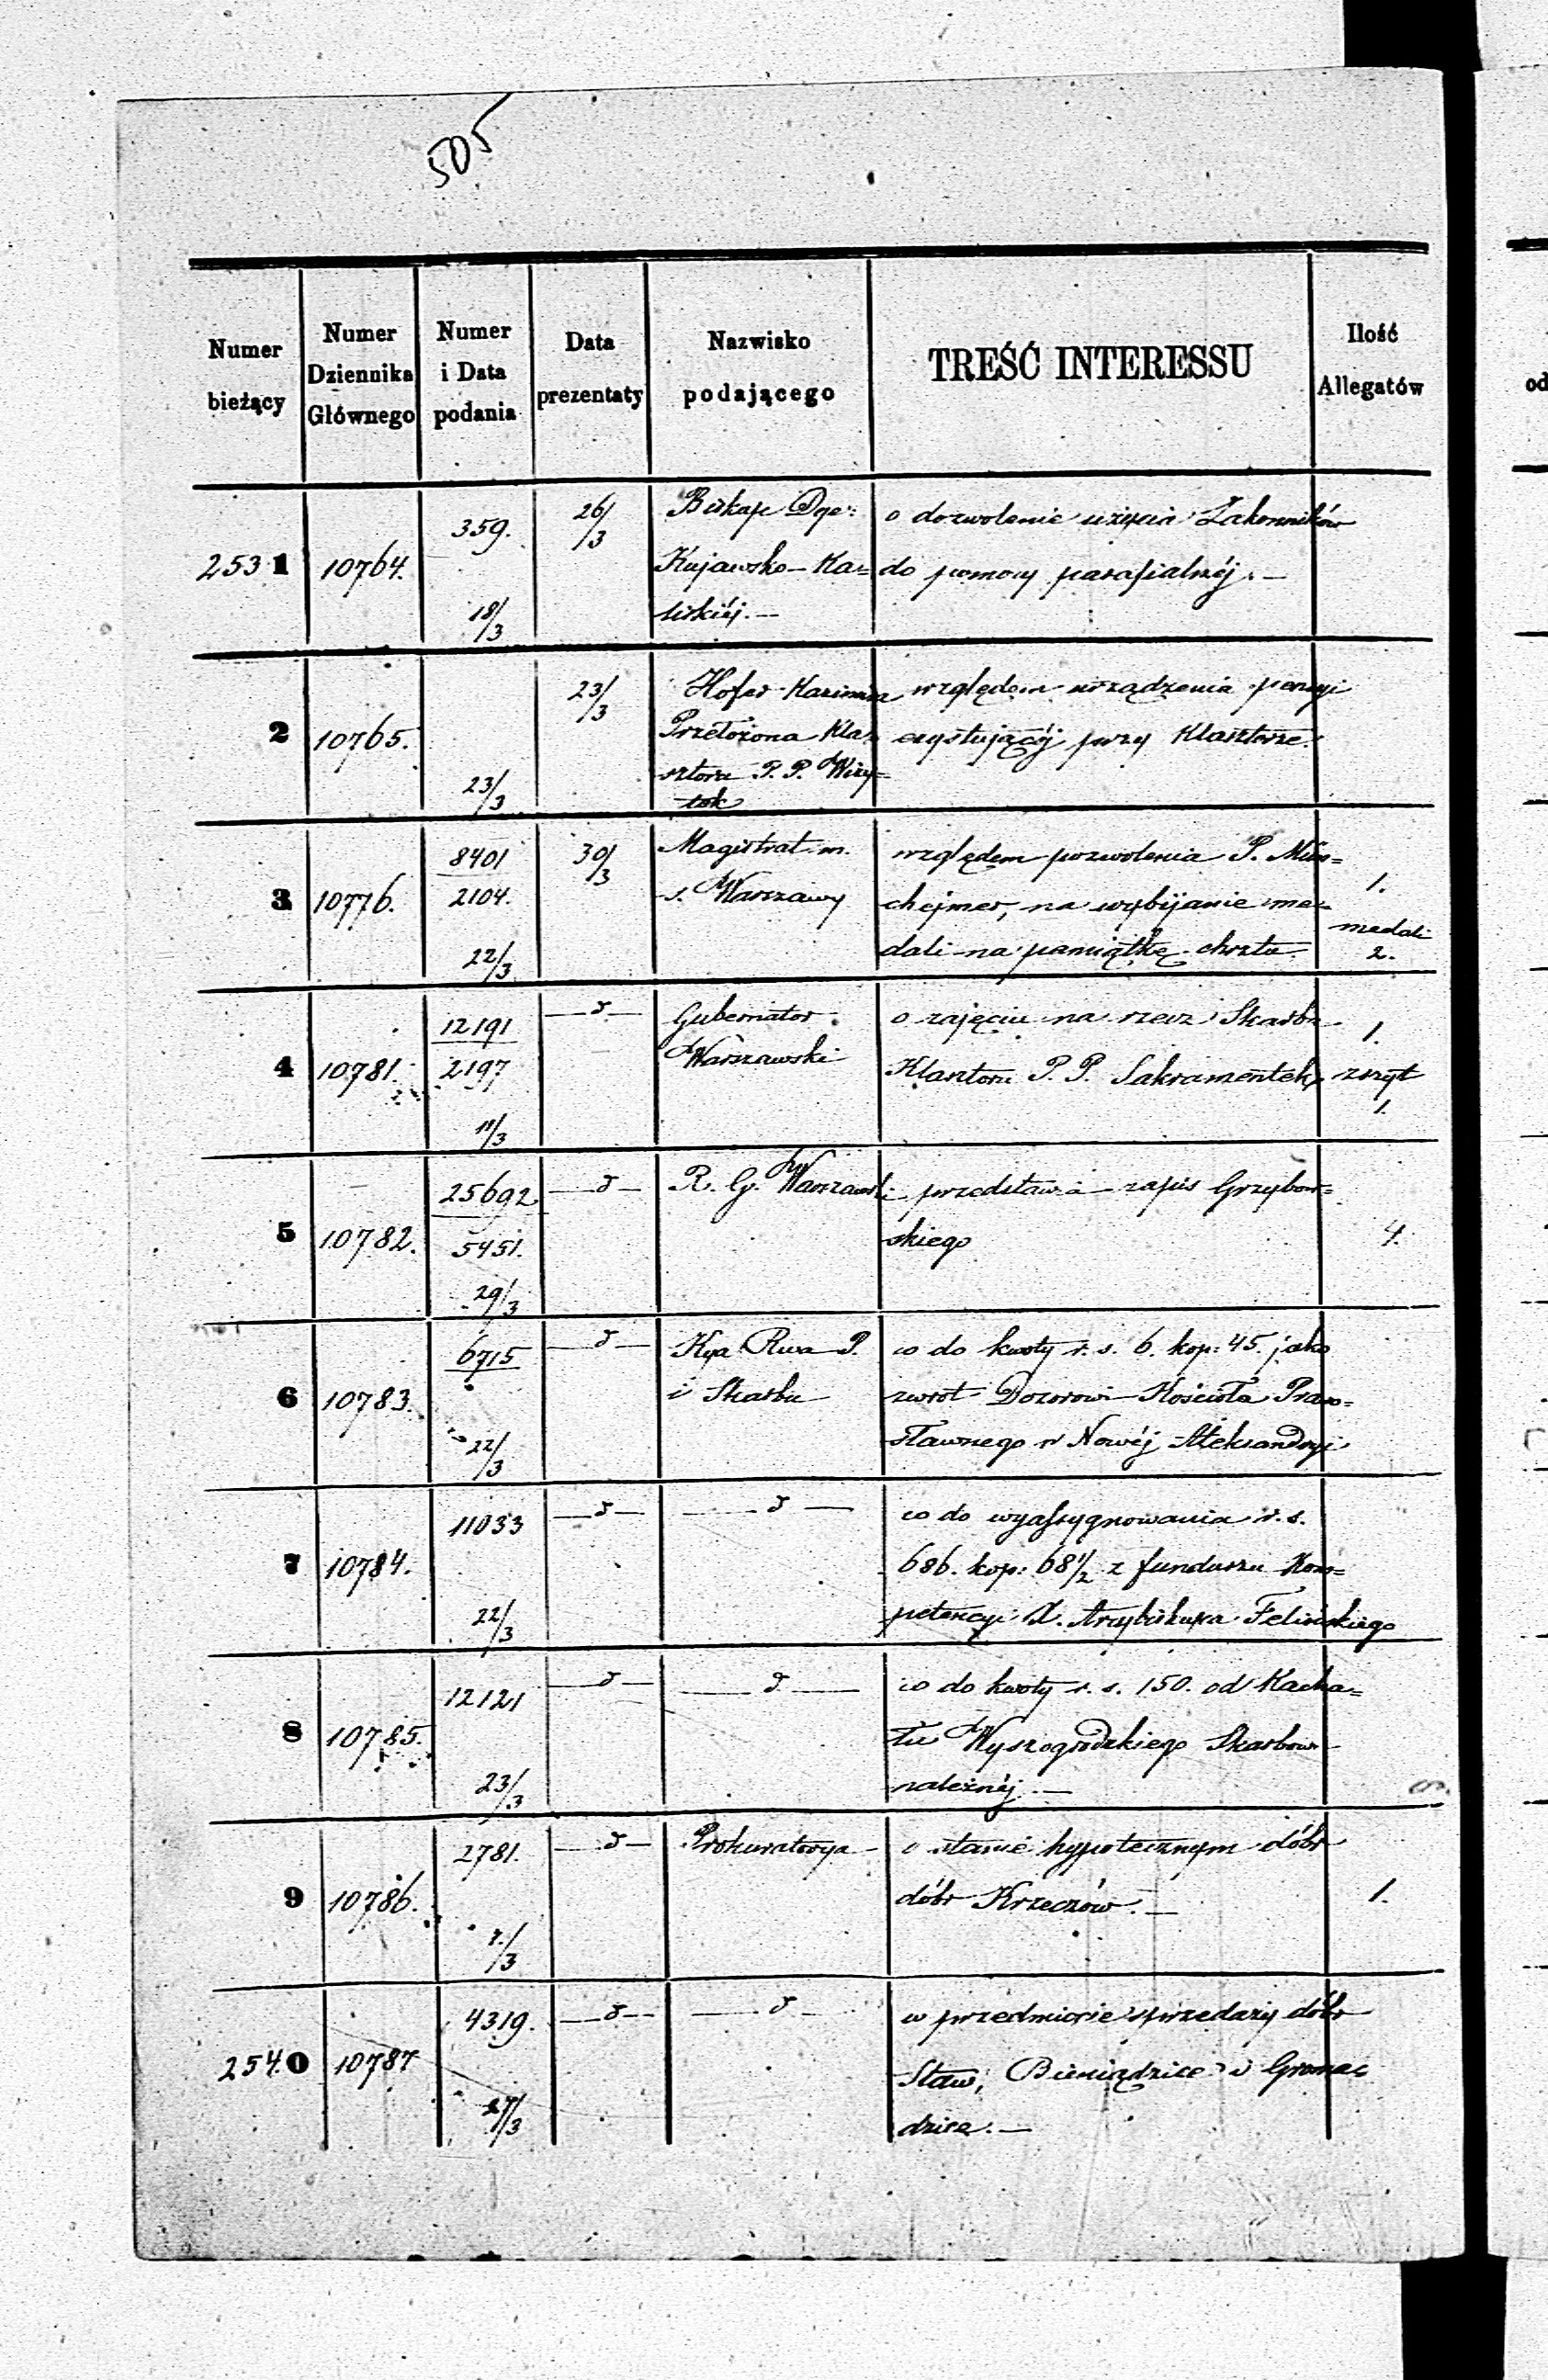 505
Numer bieżący
Numer Dziennika Głównego
Numer i Data podania
Data prezentaty
Nazwisko podającego
TREŚĆ INTERESSU
Ilość Allegatów
od
2531 10764. 359. 18/3 26/3
Biskup Dye:
Kujawsko-Ka=
liskiéj.—
o dozwolenie użycia Zakonników
do pomocy parafialnéj.—
2 10765. 23/3 23/3
Hofer Kazimira
Przełożona Kla=
sztoru P. P. Wizy=
tek
względem urządzenia pensyi
exystującéj przy Klasztorze.
3 10776. 8401 2104. 22/3 30/3
Magistrat m.
s. Warszawy
względem pozwolenia P. Min=
chejmer, na wybijanie me=
dali na pamiątkę chrztu.
1.
medali
2.
4 10781. 12191 2197 11/3 —d—
Gubernator
Warszawski
o zajęciu na rzecz Skarbu
Klasztoru P. P. Sakramentek,
1.
zszyt
1.
5 10782. 25692 5451. 29/3 —d—
R. G. Warszawski
przedstawia zapis Grzybow=
skiego
4.
6 10783. 6715 22/3 —d—
Kya Rwa P.
i Skarbu
co do kwoty r. s. 6. kop: 45. jako
zwrot Dozorowi Kościoła Praw=
sławnego w Nowéj Aleksandryi
7 10784. 11033 22/3 —d— —d—
co do wyassygnowania r. s.
686. kop: 68 1/2 z funduszu Kom=
petencyi X. Arcybiskupa Felińskiego
8 10785. 12121 23/3 —d— —d—
co do kwoty r. s. 150. od Kacha=
łu Wyszogrodzkiego Skarbowi
należnéj.—
9 10786. 2781. 7/3 —d—
Prokuratorya
o stanie hypotecznym dóbr
dóbr Krzeczów.—
1.
2540 10787 4319. 27/3 —d— —d—
w przedmiocie sprzedaży dóbr
Staw, Bieniądzice i Groma=
dzice.—